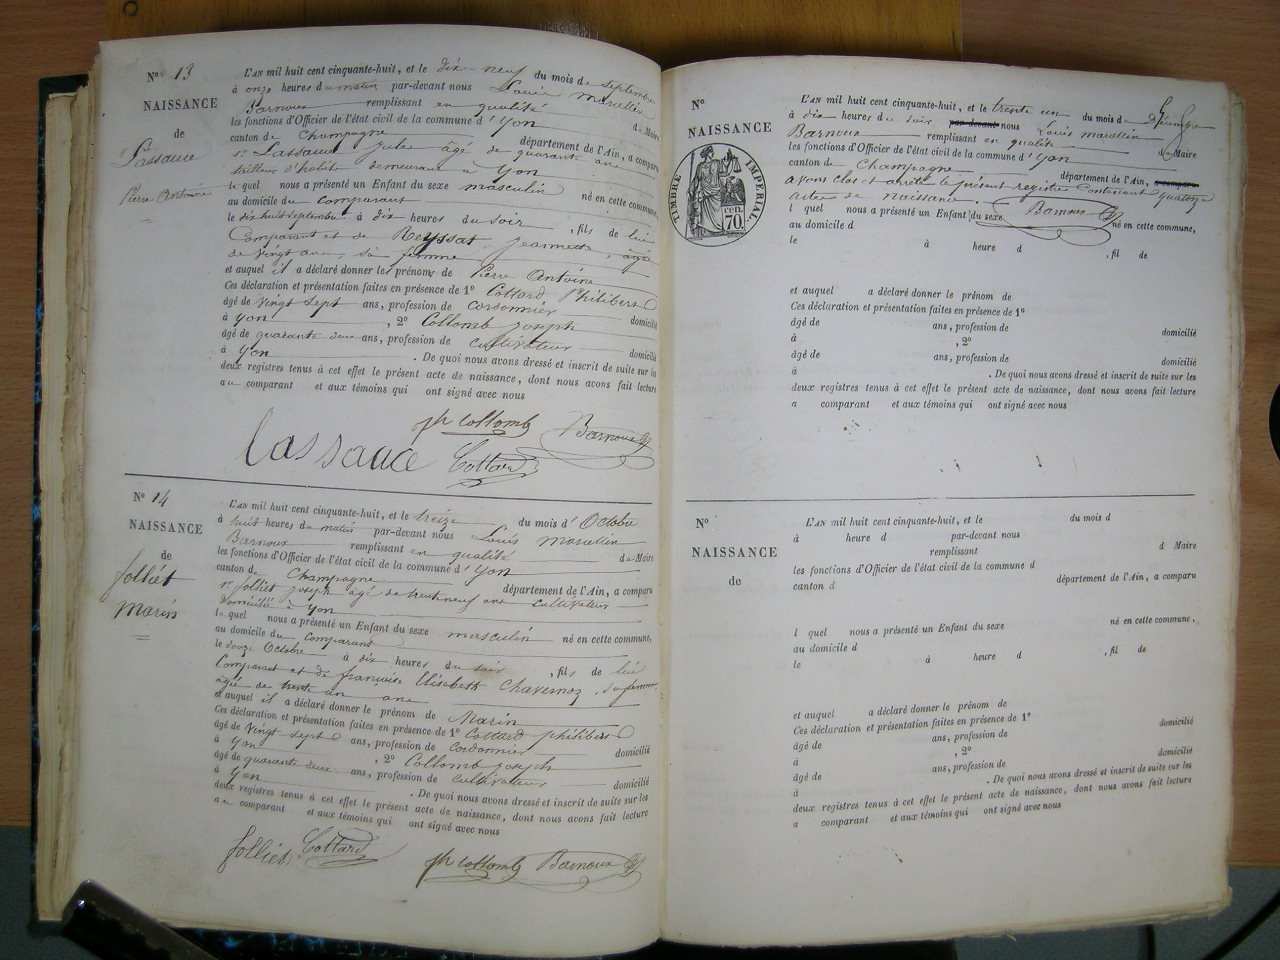 N° 13
NAISSANCE
de
Lassauce
Pierre Antoine
L'AN mil huit cent cinquante-huit, et le dix-neuf du mois de Septembre
à onze heures du matin par-devant nous Louis Marcellin
Barnoux remplissant en qualité de Maire
les fonctions d'Officier de l'état civil de la commune d'Yon
canton de Champagne département de l'Ain, a comparu
sr Lassauce jules âgé de quarante ans
tailleur d'habits demeurant à Yon
lequel nous a présenté un Enfant du sexe masculin né en cette commune,
au domicile du comparant
le dix huit septembre à dix heures du soir, fils de lui
Comparant et de Reyssat jeannette, agée
de vingt ans, sa femme
et auquel il a déclaré donner les prénoms de Pierre Antoine
Ces déclaration et présentation faites en présence de 1° Cottard Philibert
âgé de vingt sept ans, profession de cordonnier domicilié
à Yon, 2° Collomb joseph
âgé de quarante deux ans, profession de cultivateur domicilié
à Yon. De quoi nous avons dressé et inscrit de suite sur les
deux registres tenus à cet effet le présent acte de naissance, dont nous avons fait lecture
au comparant et aux témoins qui ont signé avec nous
jh collomb Barnoux
Lassauce Cottard
N° 14
NAISSANCE
de
folliet
Marin
L'AN mil huit cent cinquante-huit, et le treize du mois d'Octobre
à huit heures du matin par-devant nous Louis Marcellin
Barnoux remplissant en qualité de Maire
les fonctions d'Officier de l'état civil de la commune d'Yon
canton de Champagne département de l'Ain, a comparu
sr folliet joseph âgé de trente neuf ans cultivateur
domicilié à Yon
lequel nous a présenté un Enfant du sexe masculin né en cette commune,
au domicile du comparant
le douze Octobre à dix heures du soir, fils de lui
Comparant et de françoise Elisabeth Chavernoz, sa femme
agée de trente un ans
et auquel il a déclaré donner le prénom de Marin
Ces déclaration et présentation faites en présence de 1° Cottard philibert
âgé de Vingt-sept ans, profession de cordonnier domicilié
à Yon, 2° Collomb joseph
âgé de quarante deux ans, profession de cultivateur domicilié
à Yon. De quoi nous avons dressé et inscrit de suite sur les
deux registres tenus à cet effet le présent acte de naissance, dont nous avons fait lecture
au comparant et aux témoins qui ont signé avec nous
folliet Cottard
jh collomb Barnoux
N°
NAISSANCE
TIMBRE IMPÉRIAL
70 cen.
L'AN mil huit cent cinquante-huit, et le trente un du mois de Décembre
à dix heures du soir par-devant nous Louis marcellin
Barnoux remplissant en qualité de Maire
les fonctions d'Officier de l'état civil de la commune d'Yon
canton de Champagne département de l'Ain, a comparu
avons clos et arrêté le présent registre contenant quatorze
actes de naissance.
l quel nous a présenté un Enfant du sexe Barnoux né en cette commune,
au domicile d
le à heure d , fil de
et auquel a déclaré donner le prénom de
Ces déclaration et présentation faites en présence de 1°
âgé de ans, profession de domicilié
à , 2°
âgé de ans, profession de domicilié
à . De quoi nous avons dressé et inscrit de suite sur les
deux registres tenus à cet effet le présent acte de naissance, dont nous avons fait lecture
a comparant et aux témoins qui ont signé avec nous
N°
NAISSANCE
de
L'AN mil huit cent cinquante-huit, et le du mois d
à heure d par-devant nous
remplissant d Maire
les fonctions d'Officier de l'état civil de la commune d
canton d département de l'Ain, a comparu
l quel nous a présenté un Enfant du sexe né en cette commune,
au domicile d
le à heure d , fil de
et auquel a déclaré donner le prénom de
Ces déclaration et présentation faites en présence de 1°
âgé de ans, profession de domicilié
à , 2°
âgé de ans, profession de domicilié
à . De quoi nous avons dressé et inscrit de suite sur les
deux registres tenus à cet effet le présent acte de naissance, dont nous avons fait lecture
a comparant et aux témoins qui ont signé avec nous